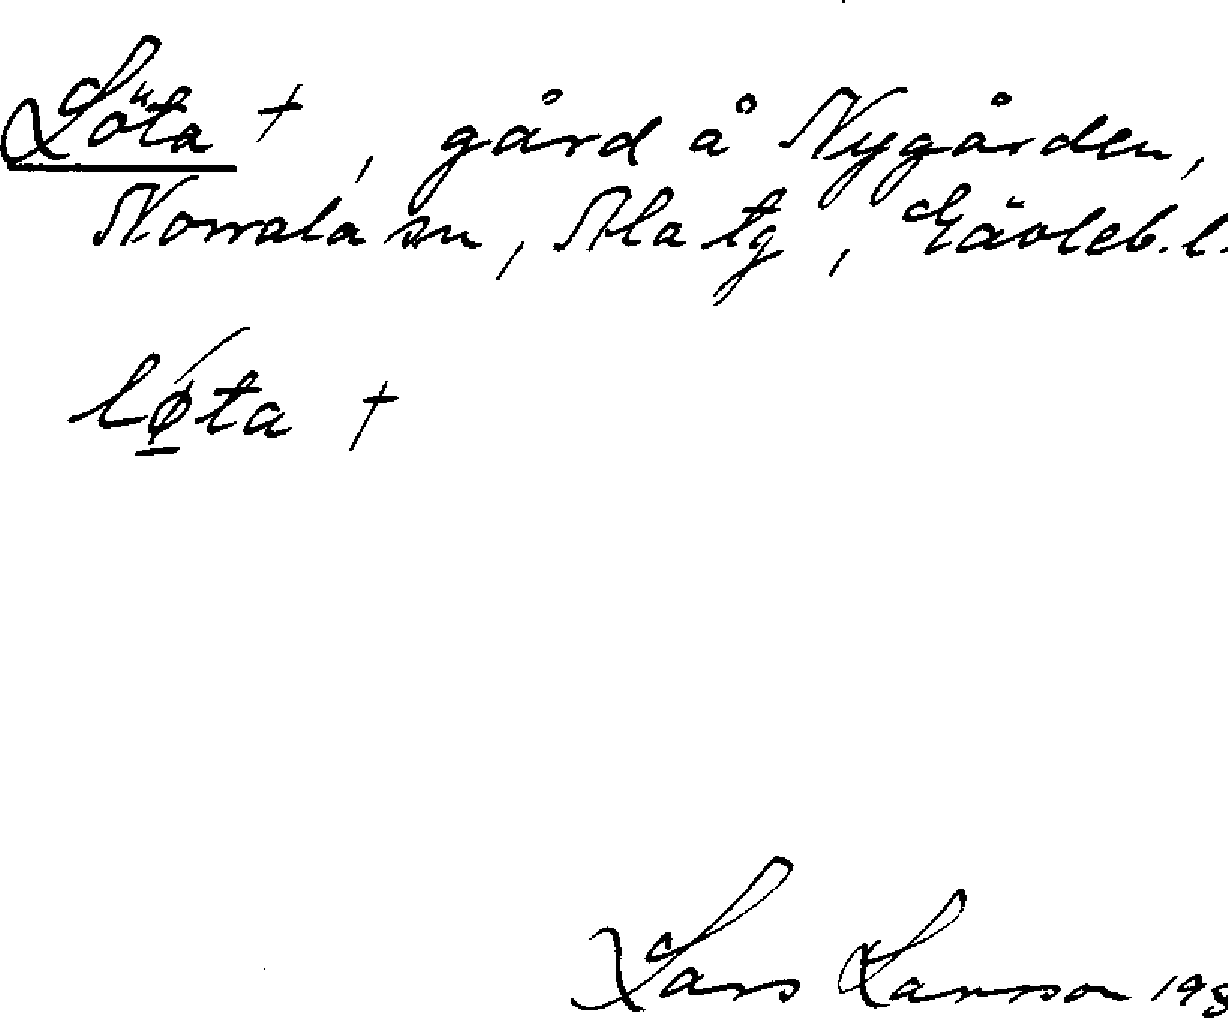 Löta +, gård å Nygården,
Norrala sn, Ala tg, Gävleb. l.
lǿ̲ta +
Lars Larsson 198